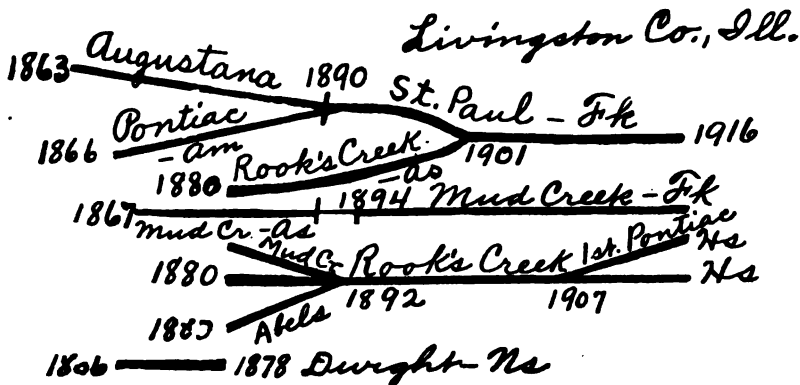 Livingston Co., Ill.
1863 Augustana 1890 St. Paul – Fk 1916
1866 Pontiac – Am
1880 Rook's Creek – As 1901
1867 Mud Cr. – As 1894 Mud Creek – Fk
1880 Mud Cr Rook's Creek 1st. Pontiac Hs
Hs
Abels 1892 1907
1878 Dwight – Ns